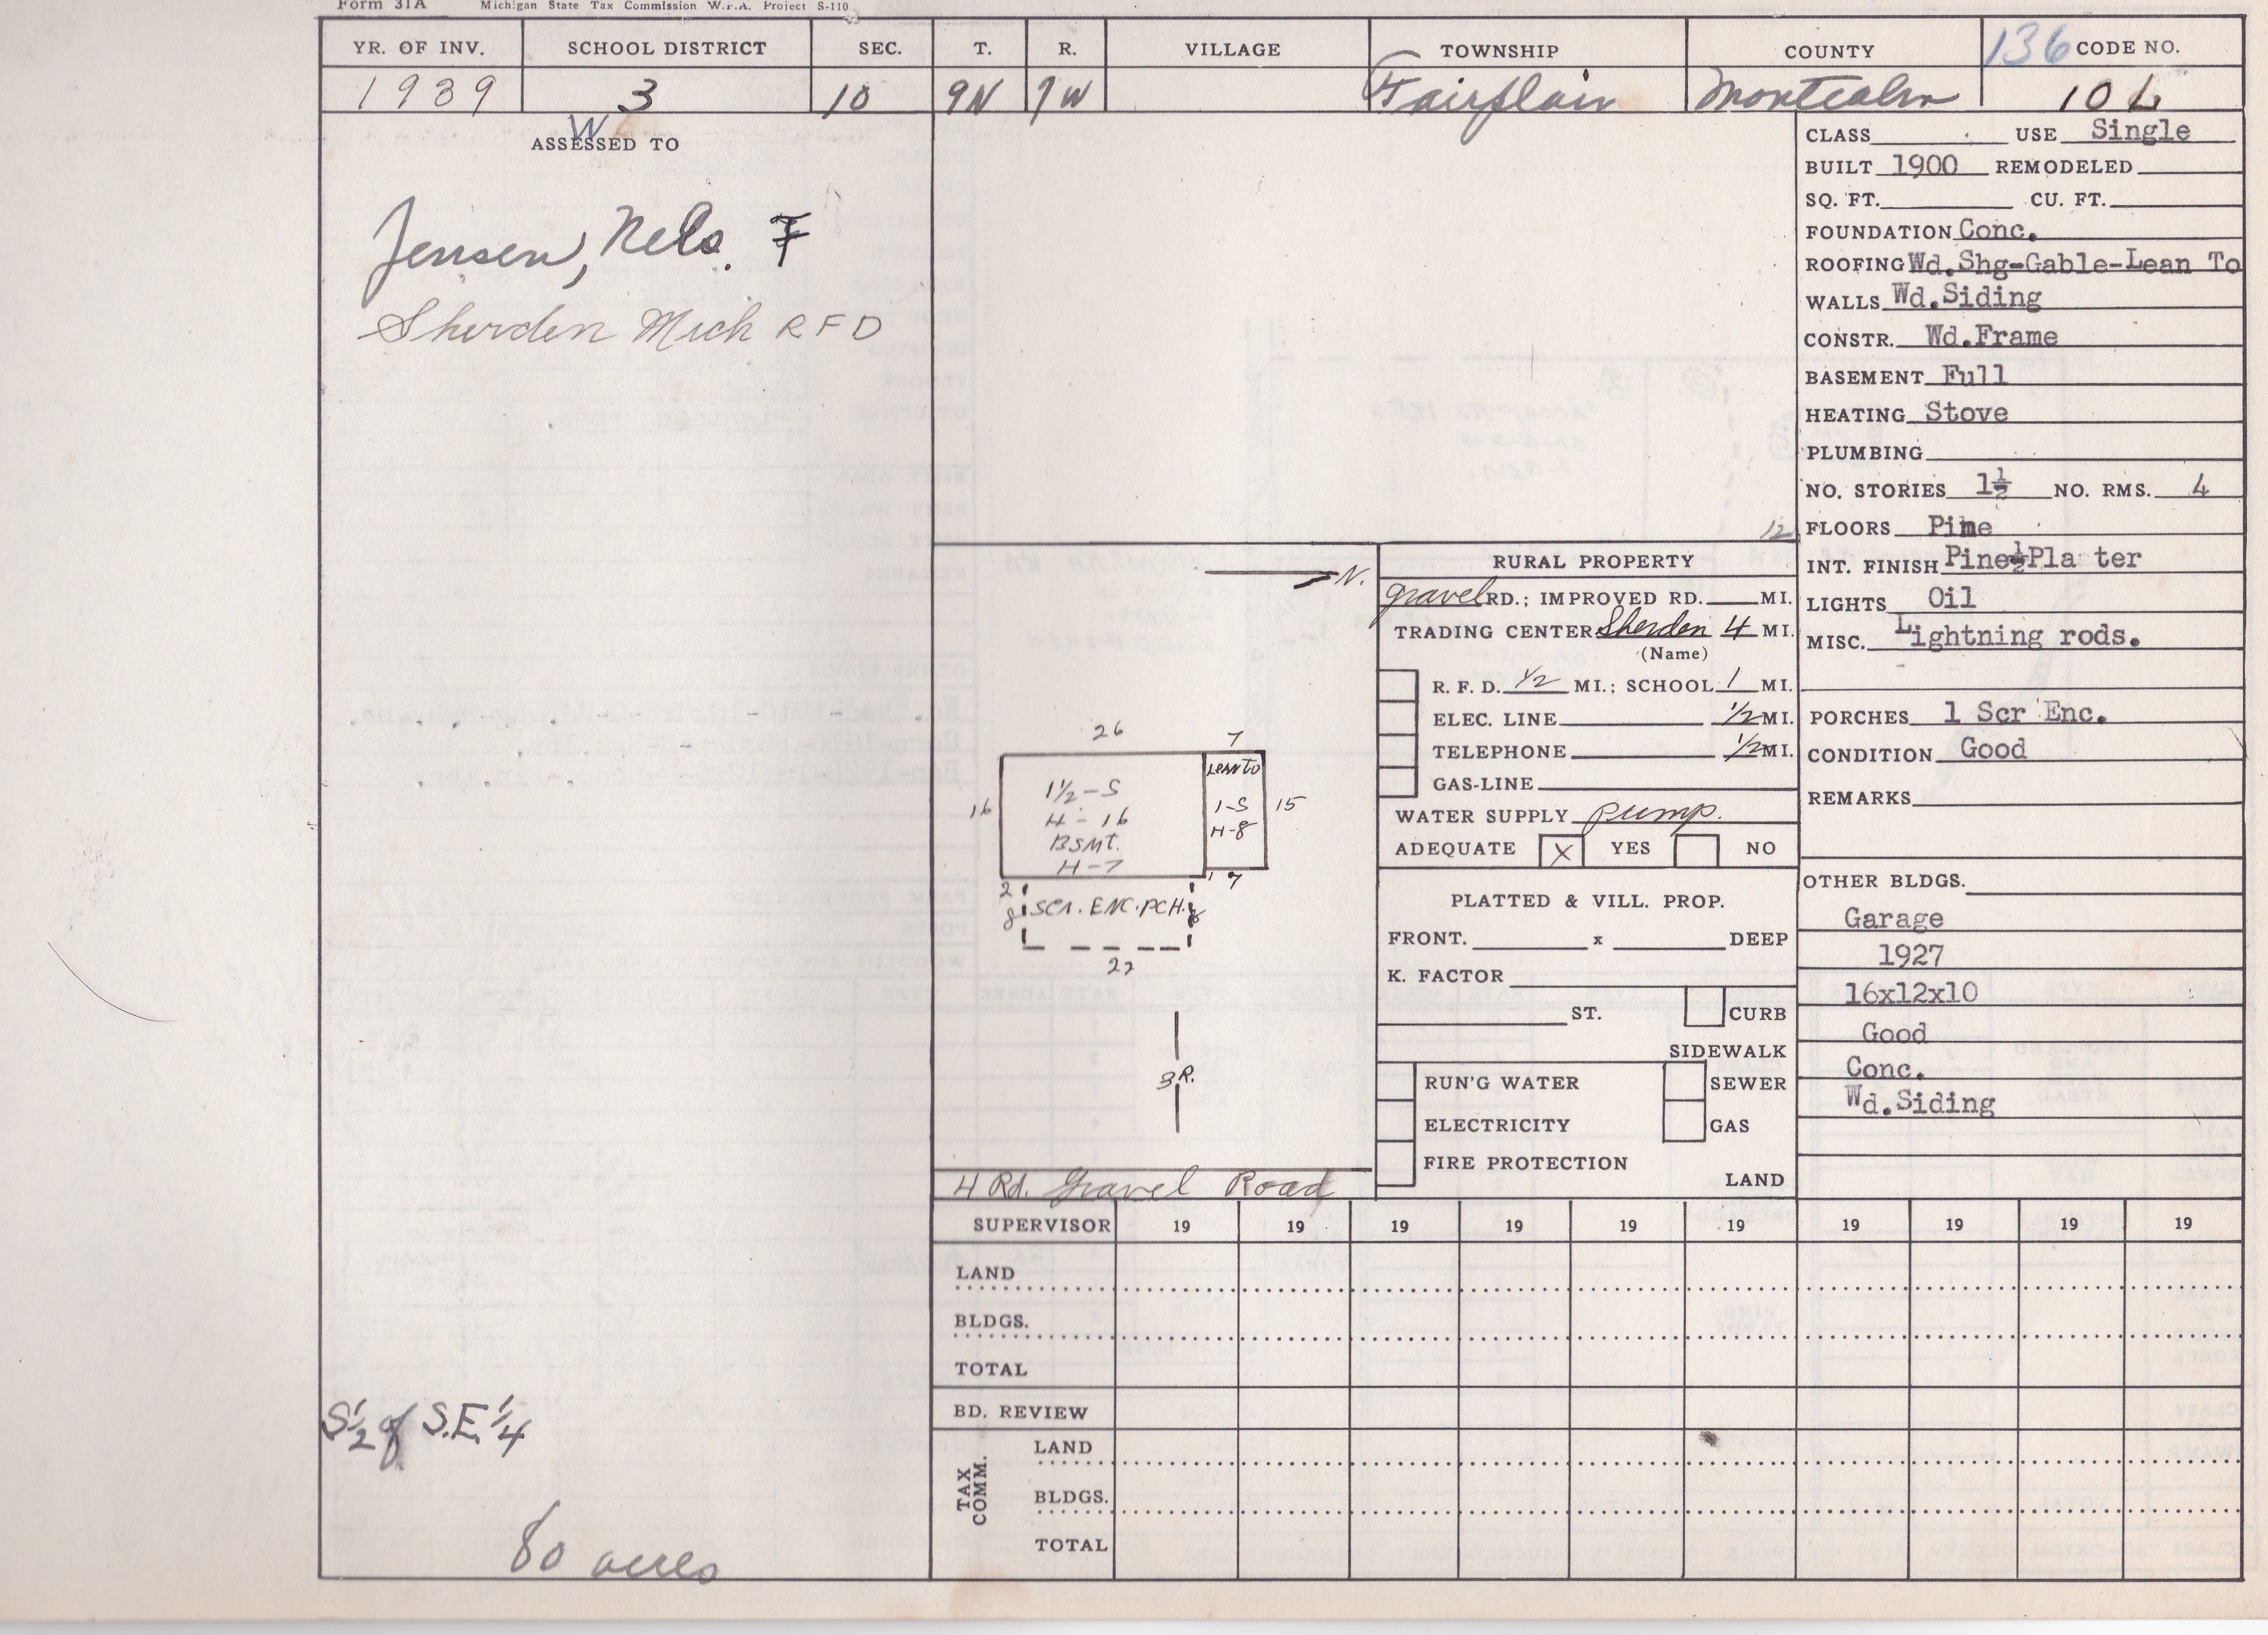 Form 31A Michigan State Tax Commission W.P.A. Project S-110
YR. OF INV. SCHOOL DISTRICT SEC. T. R. VILLAGE TOWNSHIP COUNTY 136 CODE NO.
1939 3 10 9N 7W Fairplain Montcalm 10 L
W
ASSESSED TO
Jensen, Nels. F
Sherden Mich RFD
S 1/2 of S.E. 1/4
80 acres
CLASS USE Single
BUILT 1900 REMODELED
SQ. FT. CU. FT.
FOUNDATION Conc.
ROOFING Wd.Shg-Gable-Lean To
WALLS Wd.Siding
CONSTR. Wd.Frame
BASEMENT Full
HEATING Stove
PLUMBING
NO. STORIES 1½ NO. RMS. 4
FLOORS Pine
INT. FINISH Pine½Pla ter
LIGHTS Oil
MISC. Lightning rods.
PORCHES 1 Scr Enc.
CONDITION Good
REMARKS
OTHER BLDGS.
Garage
1927
16x12x10
Good
Conc.
Wd.Siding
12
N.
26 7
16 1½-S Lean to 15
H-16 1-S
BSMT. H-8
H-7
2 7
8 SCR. ENC. PCH. 8
22
3 R.
4 Rd. Gravel Road
RURAL PROPERTY
gravel RD.; IMPROVED RD. MI.
TRADING CENTER Sherden 4 MI.
(Name)
R. F. D. 1/2 MI.; SCHOOL 1 MI.
ELEC. LINE 1/2 MI.
TELEPHONE 1/2 MI.
GAS-LINE
WATER SUPPLY pump.
ADEQUATE X YES NO
PLATTED & VILL. PROP.
FRONT. x DEEP
K. FACTOR
ST. CURB
SIDEWALK
RUN'G WATER SEWER
ELECTRICITY GAS
FIRE PROTECTION
LAND
SUPERVISOR 19 19 19 19 19 19 19 19 19 19
LAND
BLDGS.
TOTAL
BD. REVIEW
TAX COMM.
LAND
BLDGS.
TOTAL